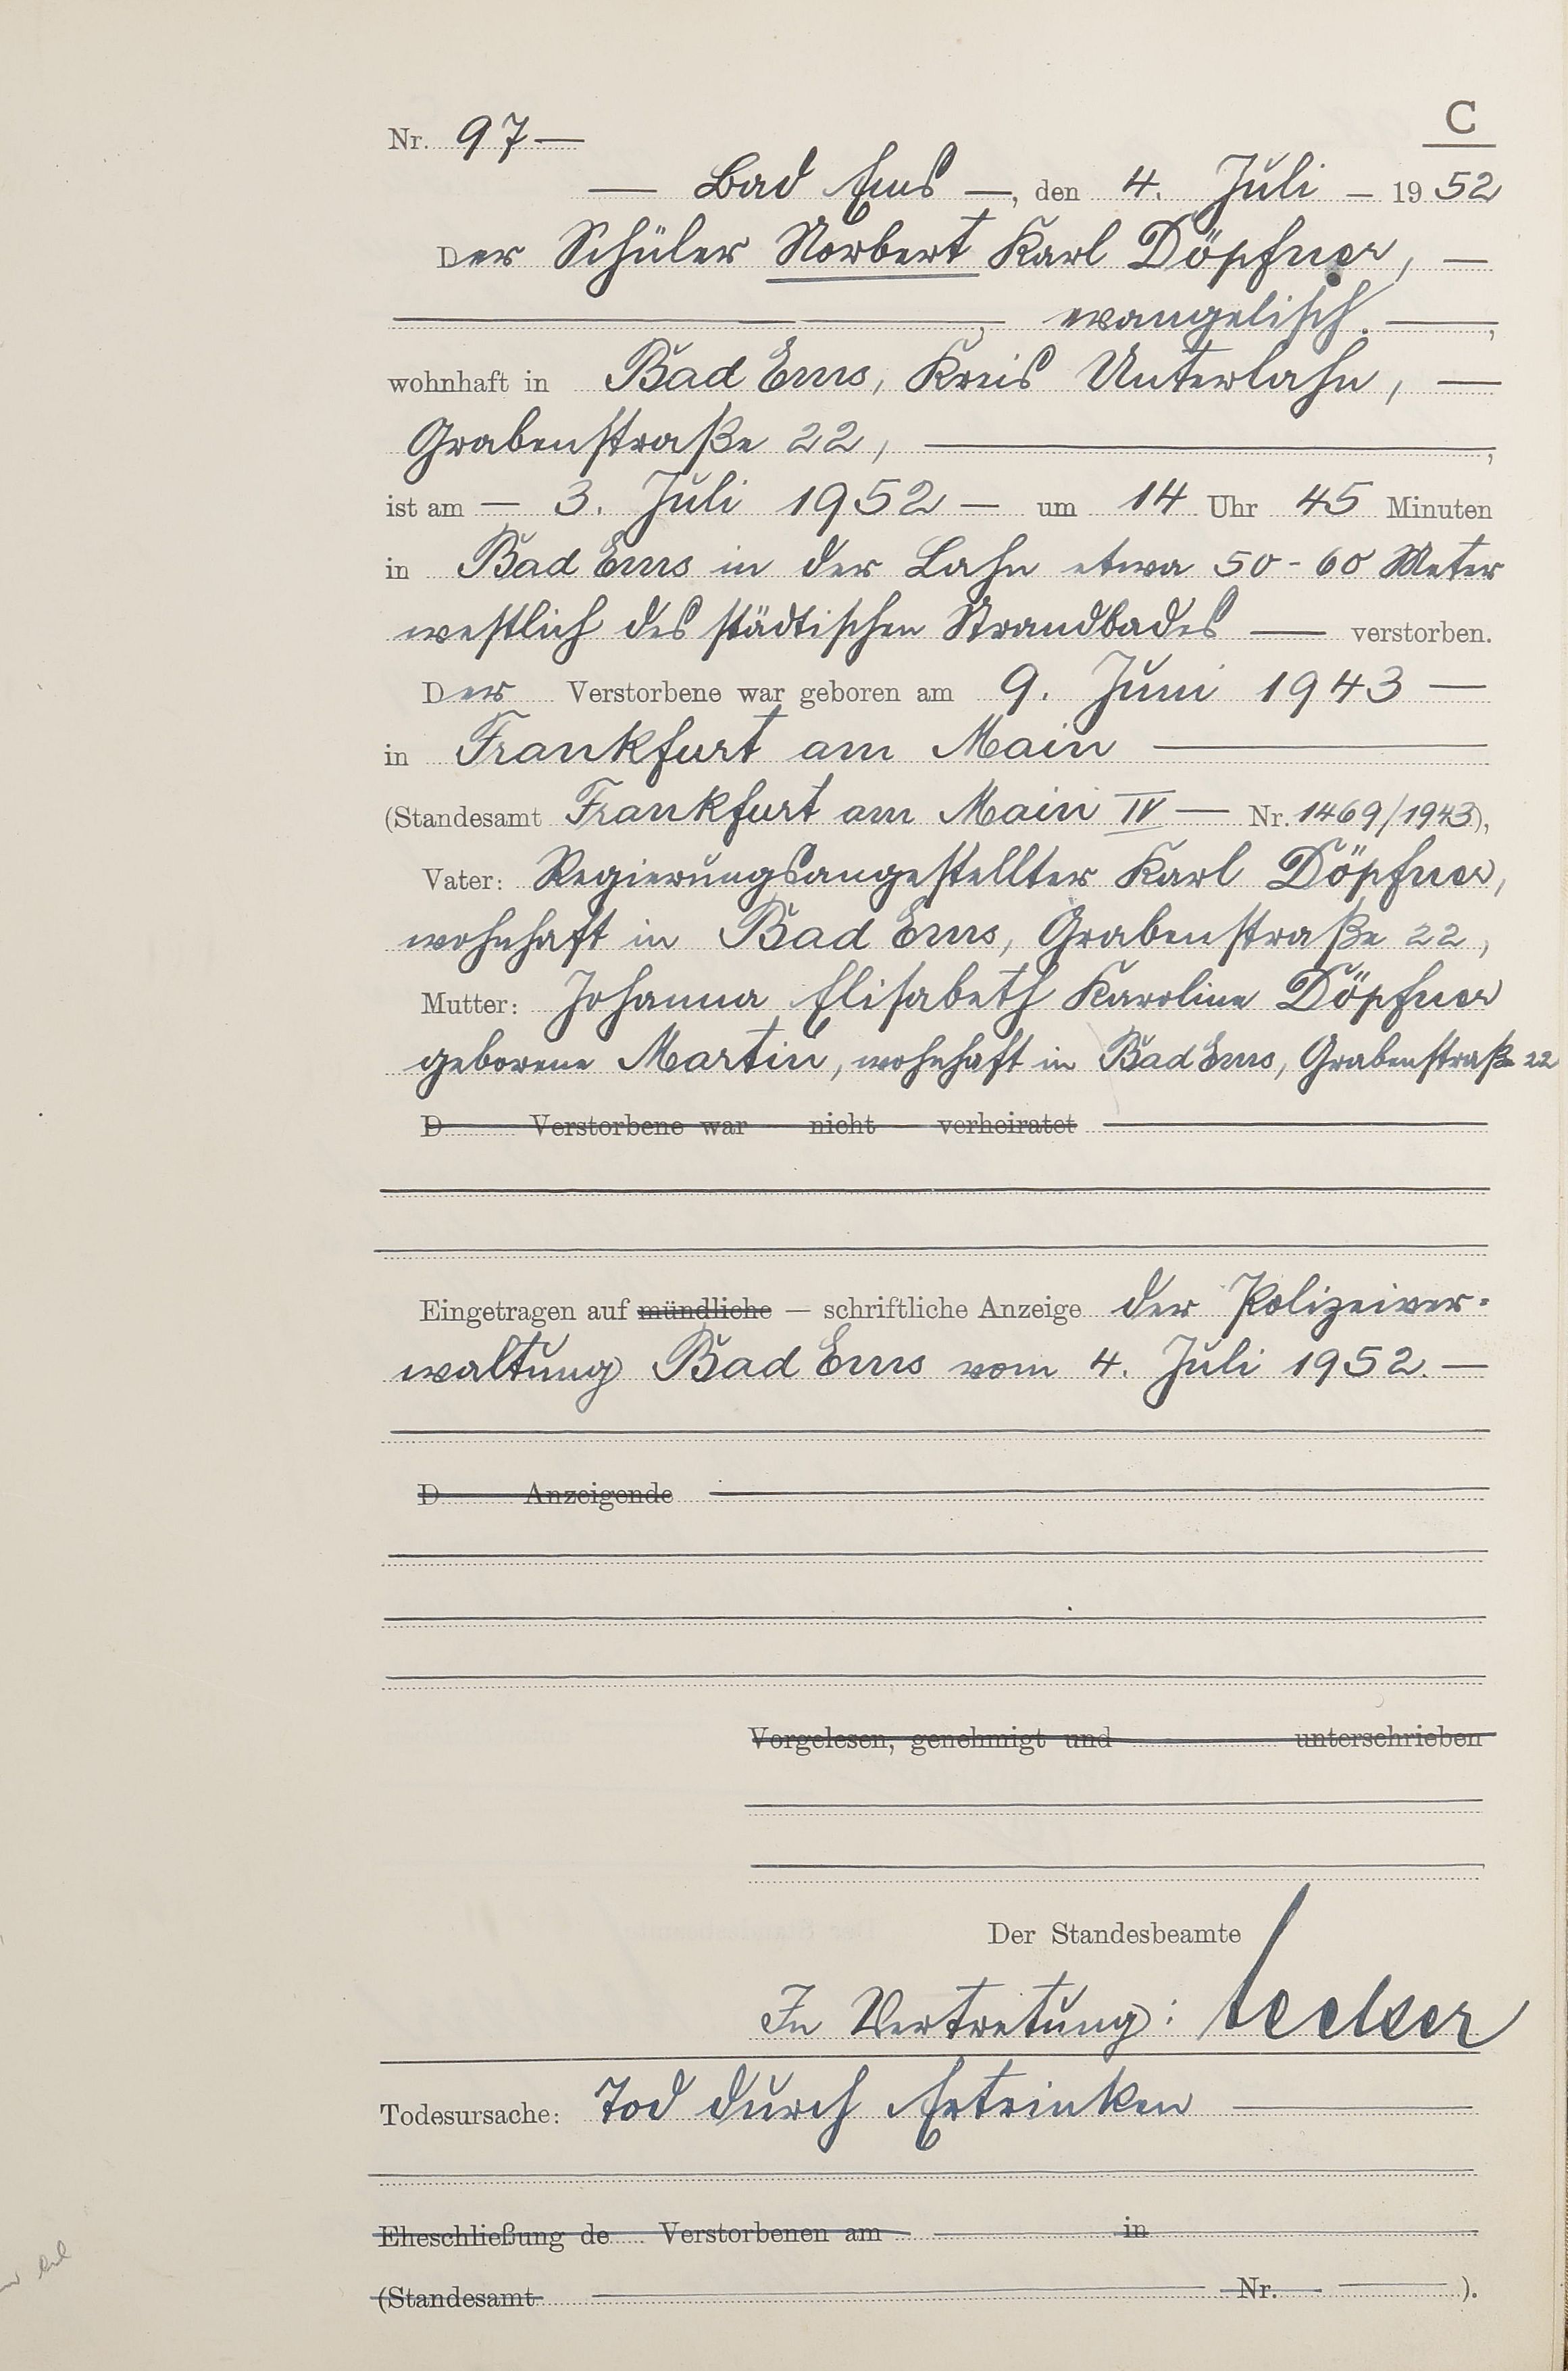 C
Nr. 97 —
— Bad Ems —, den 4. Juli — 1952
Der Schüler Norbert Karl Döpfner, —
—, evangelisch. —,
wohnhaft in Bad Ems, Kreis Unterlahn, —
Grabenstraße 22, —,
ist am — 3. Juli 1952 — um 14 Uhr 45 Minuten
in Bad Ems in der Lahn etwa 50-60 Meter
westlich des städtischen Strandbades — verstorben.
Der Verstorbene war geboren am 9. Juni 1943 —
in Frankfurt am Main —
(Standesamt Frankfurt am Main IV — Nr. 1469/1943),
Vater: Regierungsangestellter Karl Döpfner,
wohnhaft in Bad Ems, Grabenstraße 22,
Mutter: Johanna Elisabeth Karoline Döpfner
geborene Martin, wohnhaft in Bad Ems, Grabenstraße 22
D Verstorbene war — nicht — verheiratet —
Eingetragen auf mündliche — schriftliche Anzeige der Polizeiver-
waltung Bad Ems vom 4. Juli 1952. —
D Anzeigende —
Vorgelesen, genehmigt und unterschrieben
Der Standesbeamte
In Vertretung:
Todesursache: Tod durch Ertrinken —
Eheschließung de Verstorbenen am — in —
(Standesamt — Nr. — ).